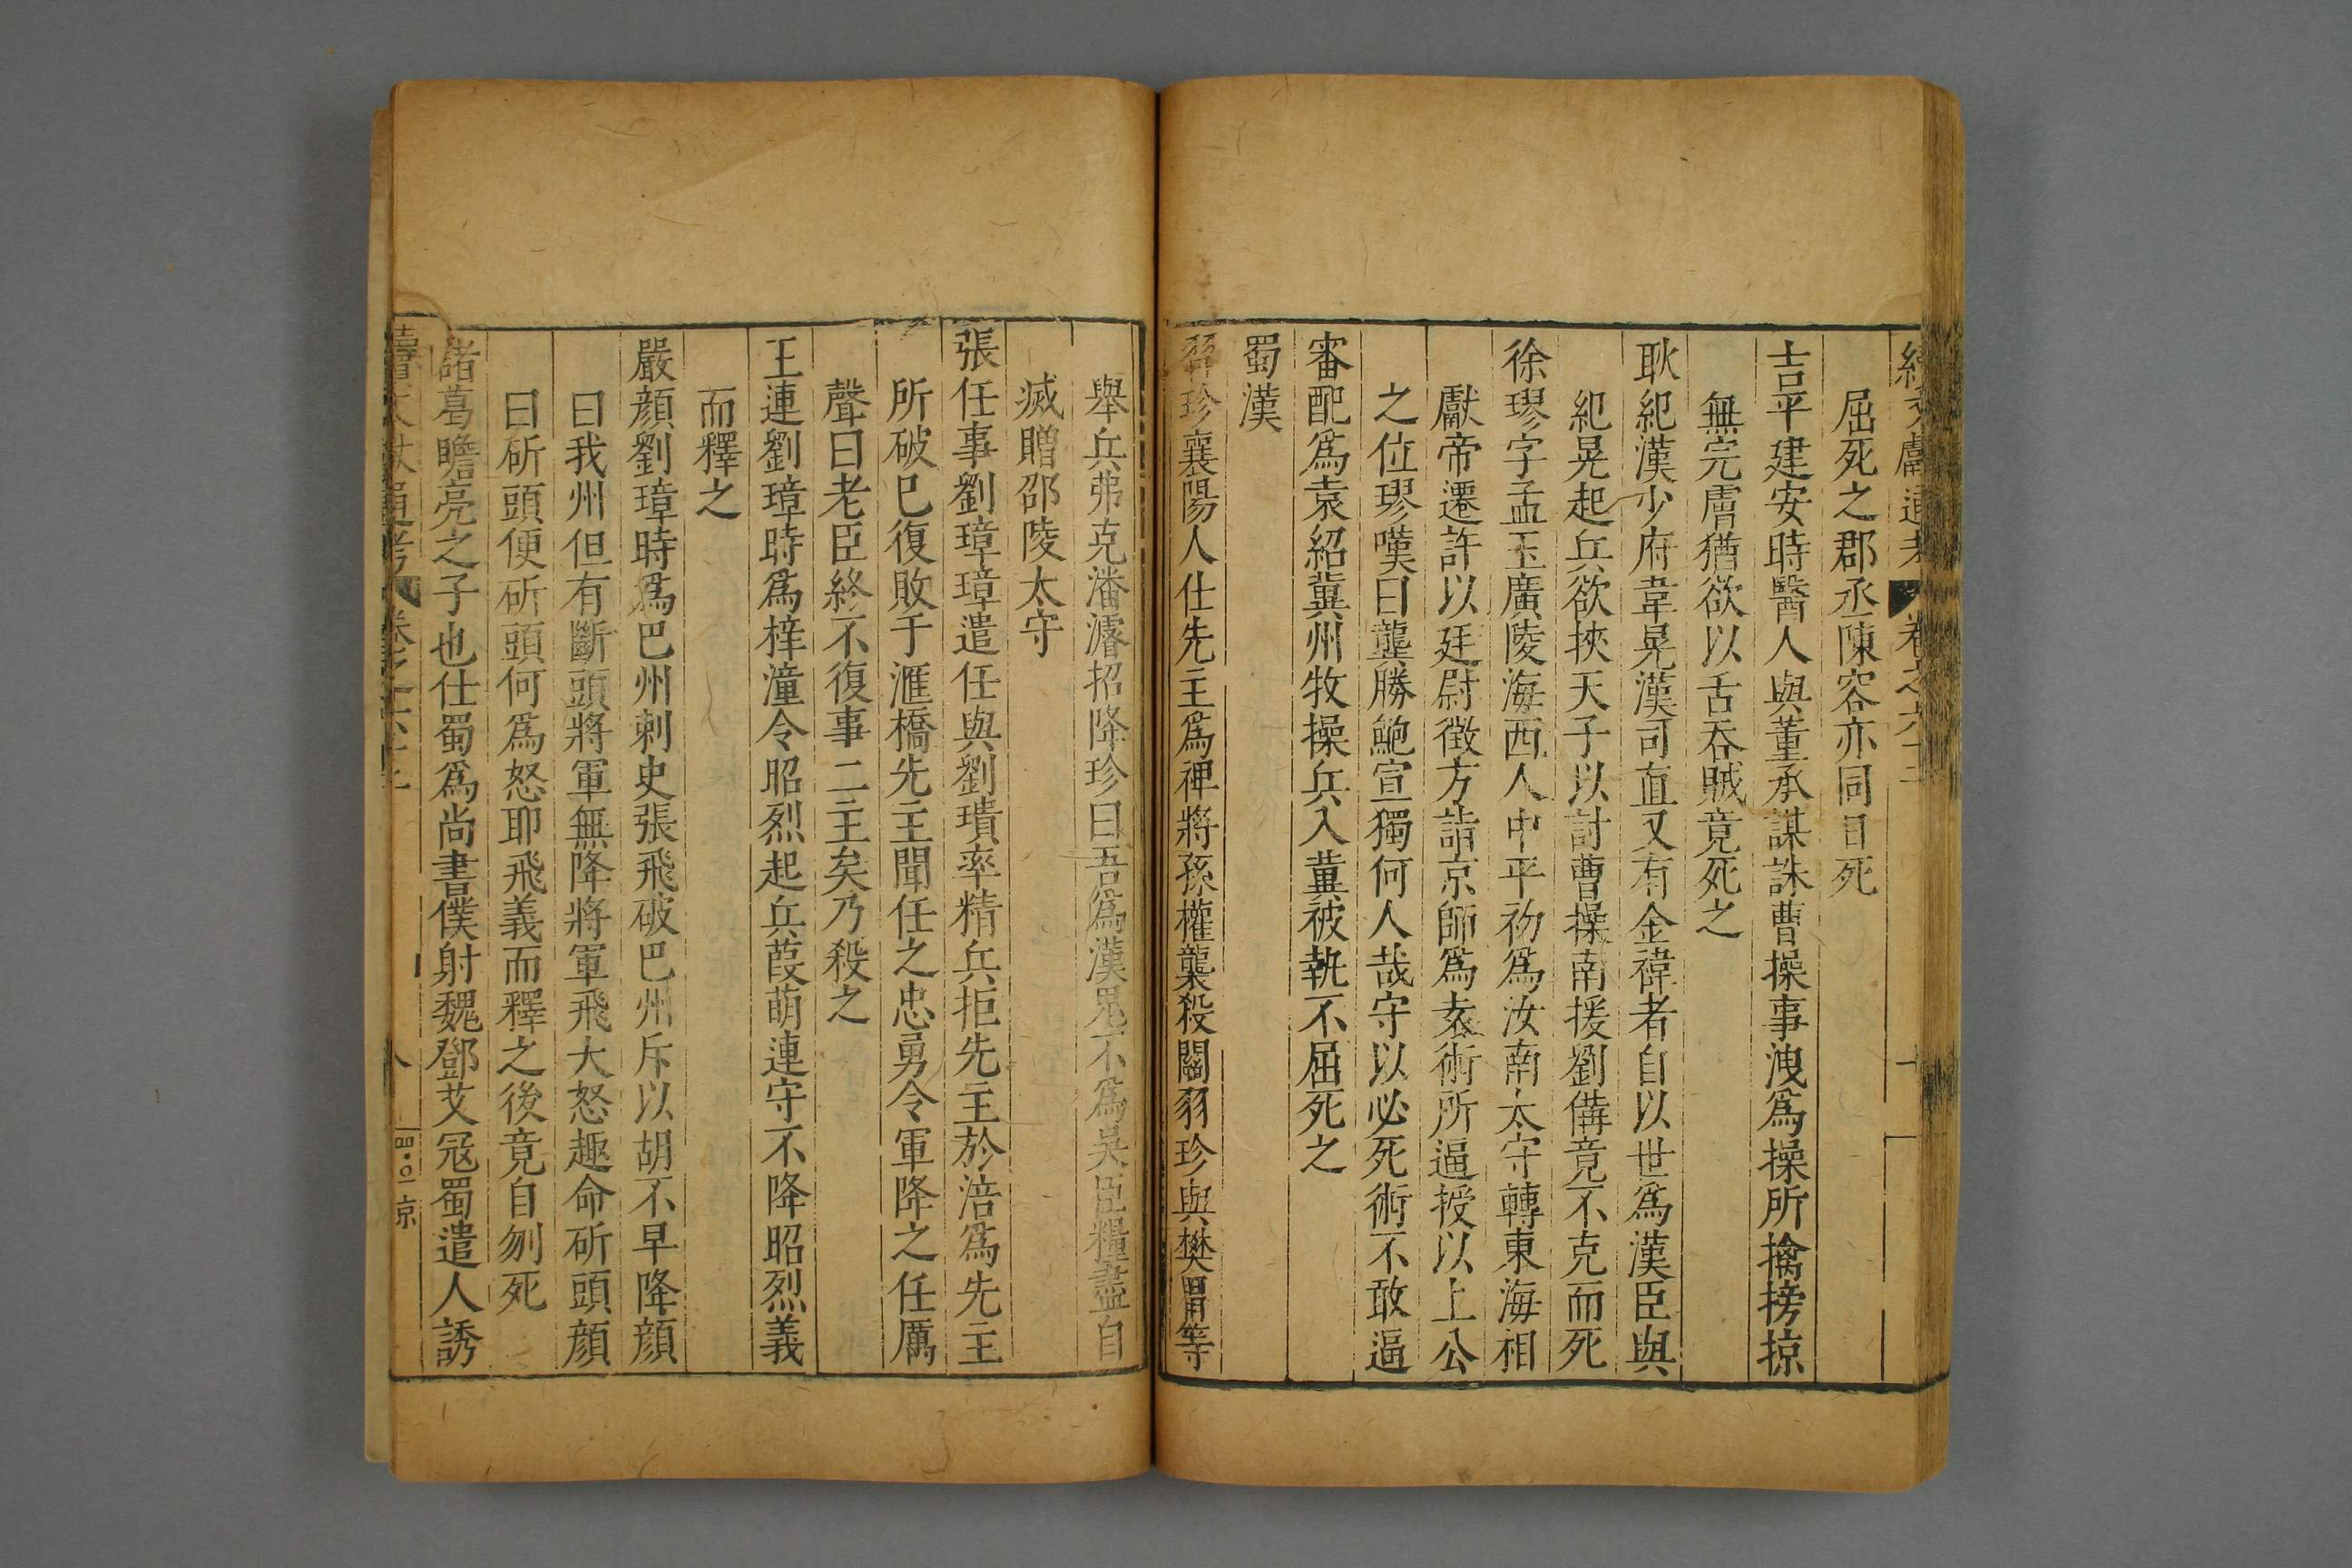 續文獻通考 卷之六十
屈死之郡丞陳容亦同日死
吉平建安時醫人與董承謀誅曹操事洩爲操所擒搒掠
無完膚猶欲以舌吞賊竟死之
耿紀漢少府韋晃漢司直又有金禕者自以世爲漢臣與
紀晃起兵欲挾天子以討曹操南援劉備竟不克而死
徐璆字孟玉廣陵海西人中平初爲汝南太守轉東海相
獻帝遷許以廷尉徵方詣京師爲袁術所逼授以上公
之位璆嘆曰龔勝鮑宣獨何人哉守以必死術不敢逼
審配爲袁紹冀州牧操兵入冀被執不屈死之
蜀漢
習珍襄陽人仕先主爲裨將孫權襲殺關羽珍與樊胄等
舉兵弗克潘濬招降珍曰吾爲漢鬼不爲吳臣糧盡自
滅贈邵陵太守
張任事劉璋璋遣任與劉璝率精兵拒先主於涪爲先主
所破已復敗于滙橋先主聞任之忠勇令軍降之任厲
聲曰老臣終不復事二主矣乃殺之
王連劉璋時爲梓潼令昭烈起兵葭萌連守不降昭烈義
而釋之
嚴顔劉璋時爲巴州刺史張飛破巴州斥以胡不早降顔
曰我州但有斷頭將軍無降將軍飛大怒趣命斫頭顔
曰斫頭便斫頭何爲怒耶飛義而釋之後竟自刎死
諸葛瞻亮之子也仕蜀爲尚書僕射魏鄧艾冦蜀遣人誘
續文獻通考 卷之六十 八 四〇一 京